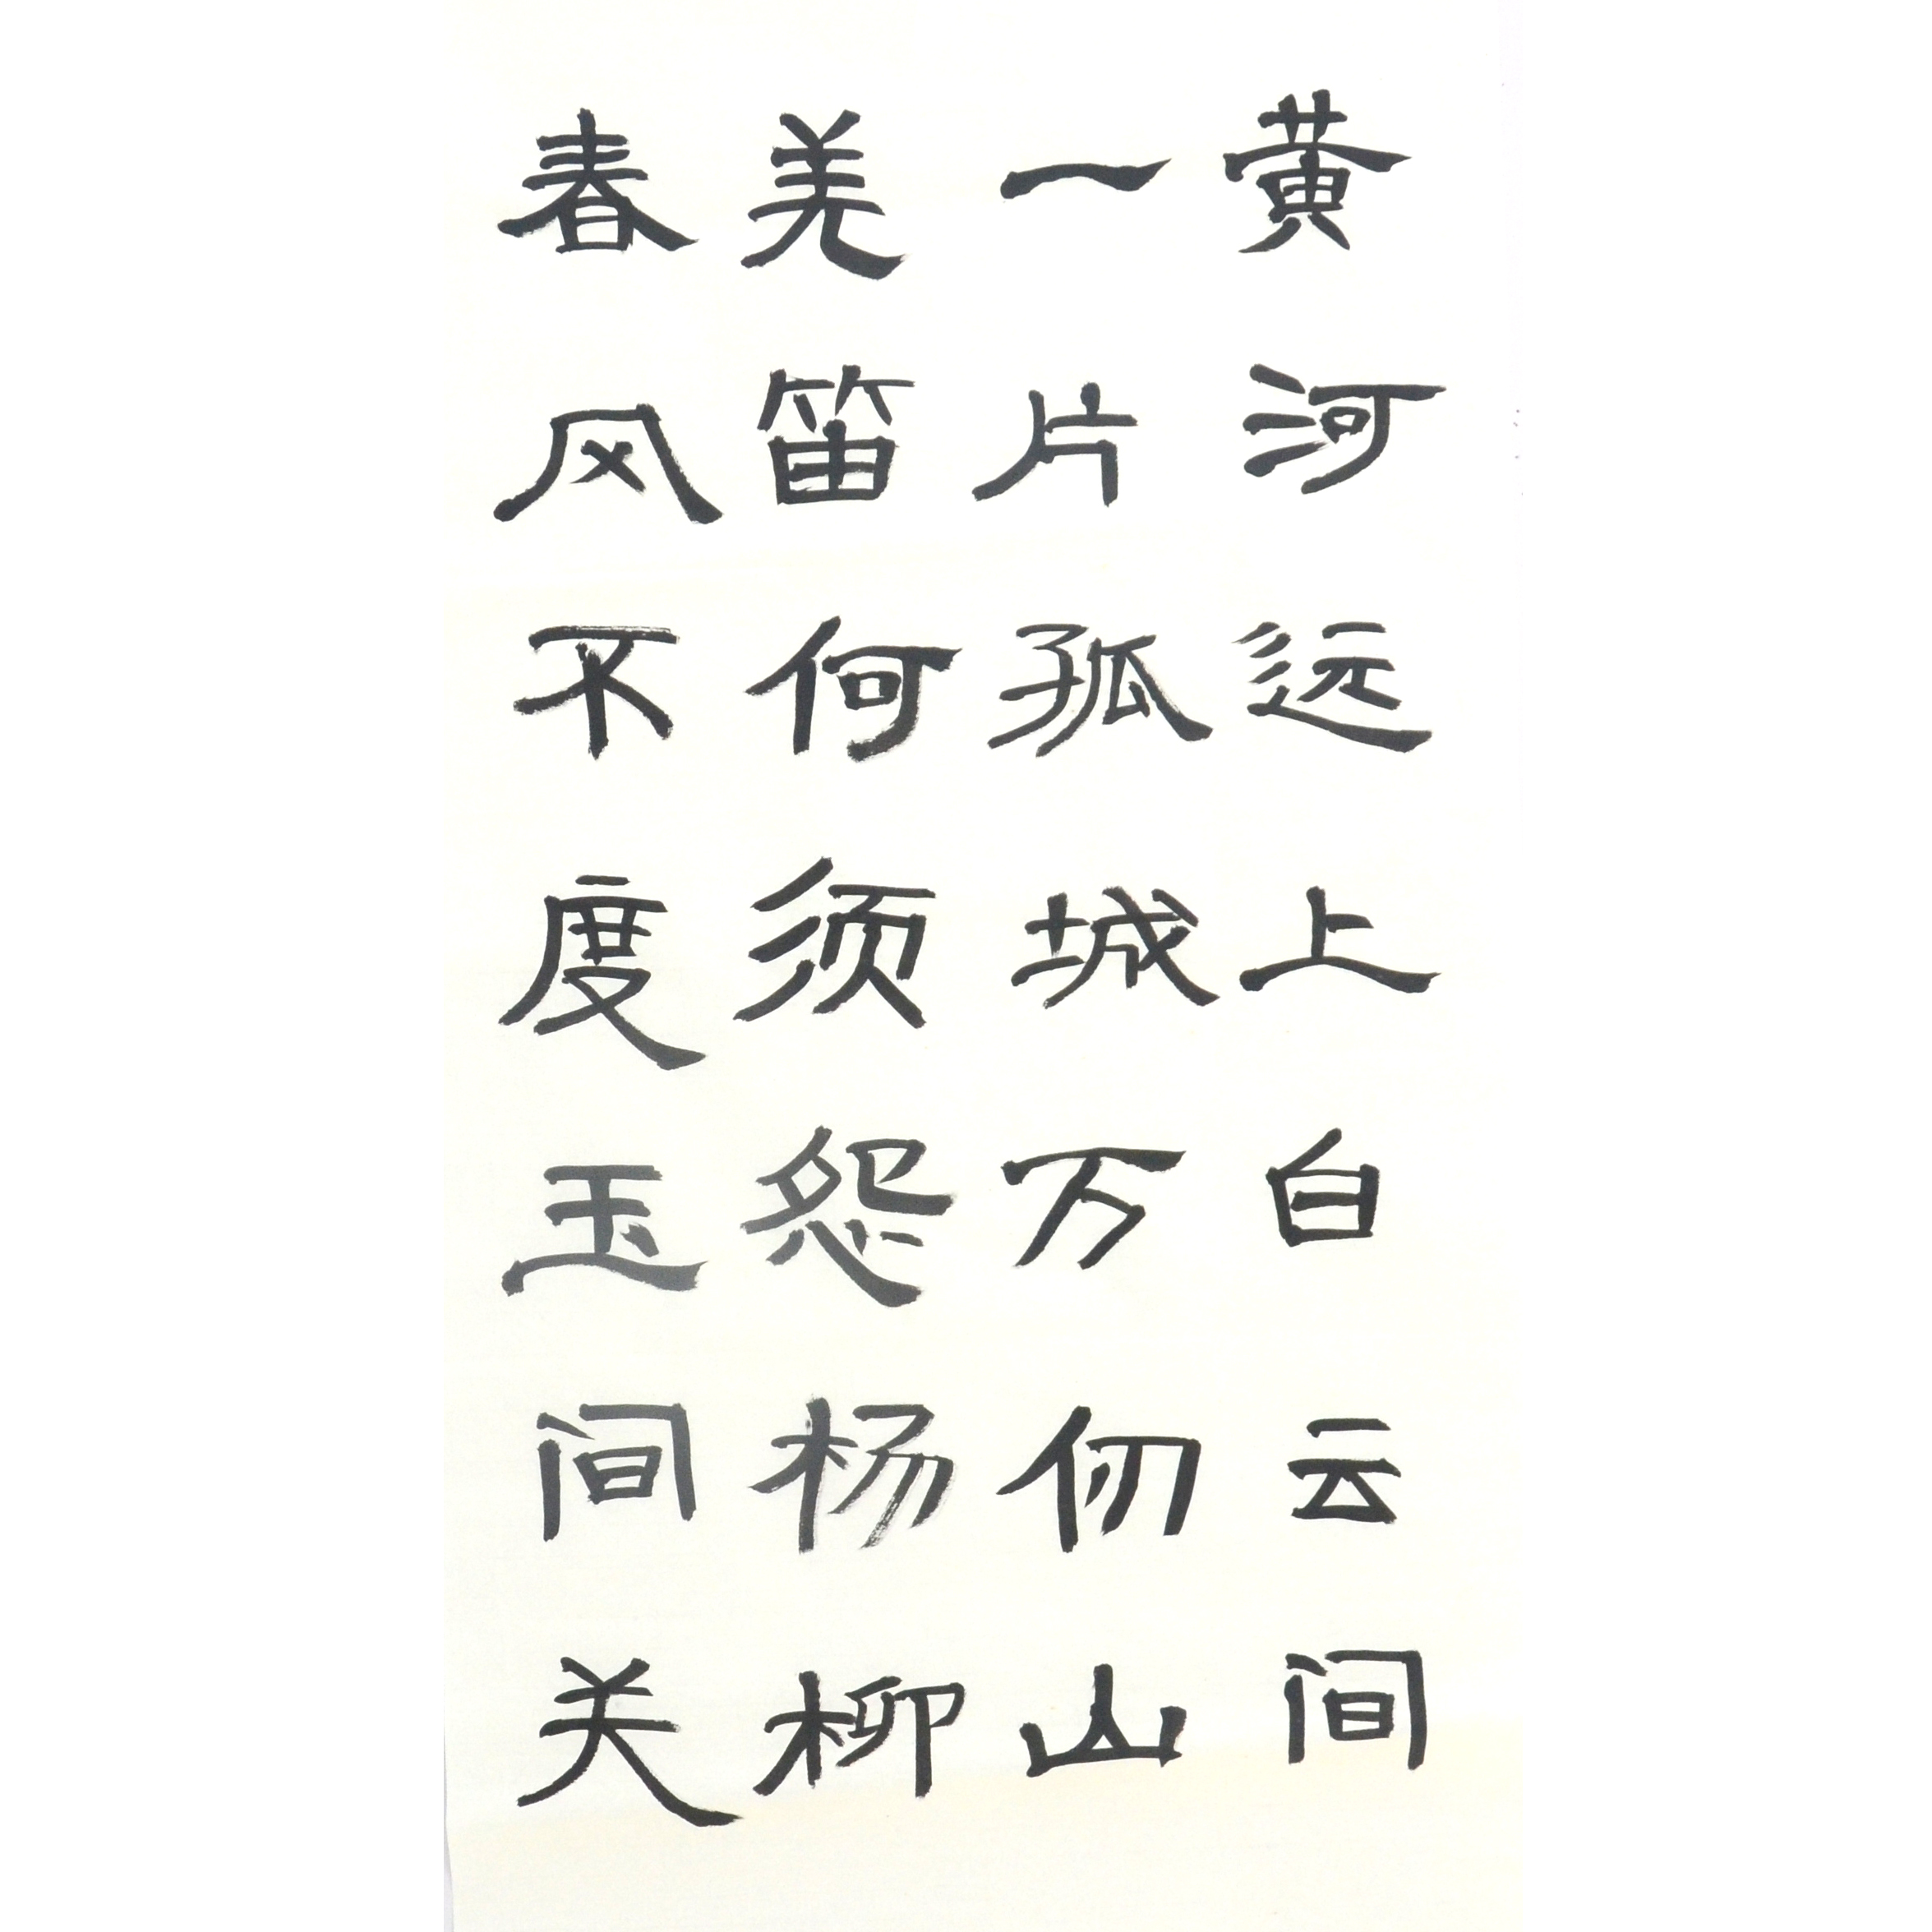 黄河远上白云间
一片孤城万仞山
羌笛何须怨杨柳
春风不度玉间关